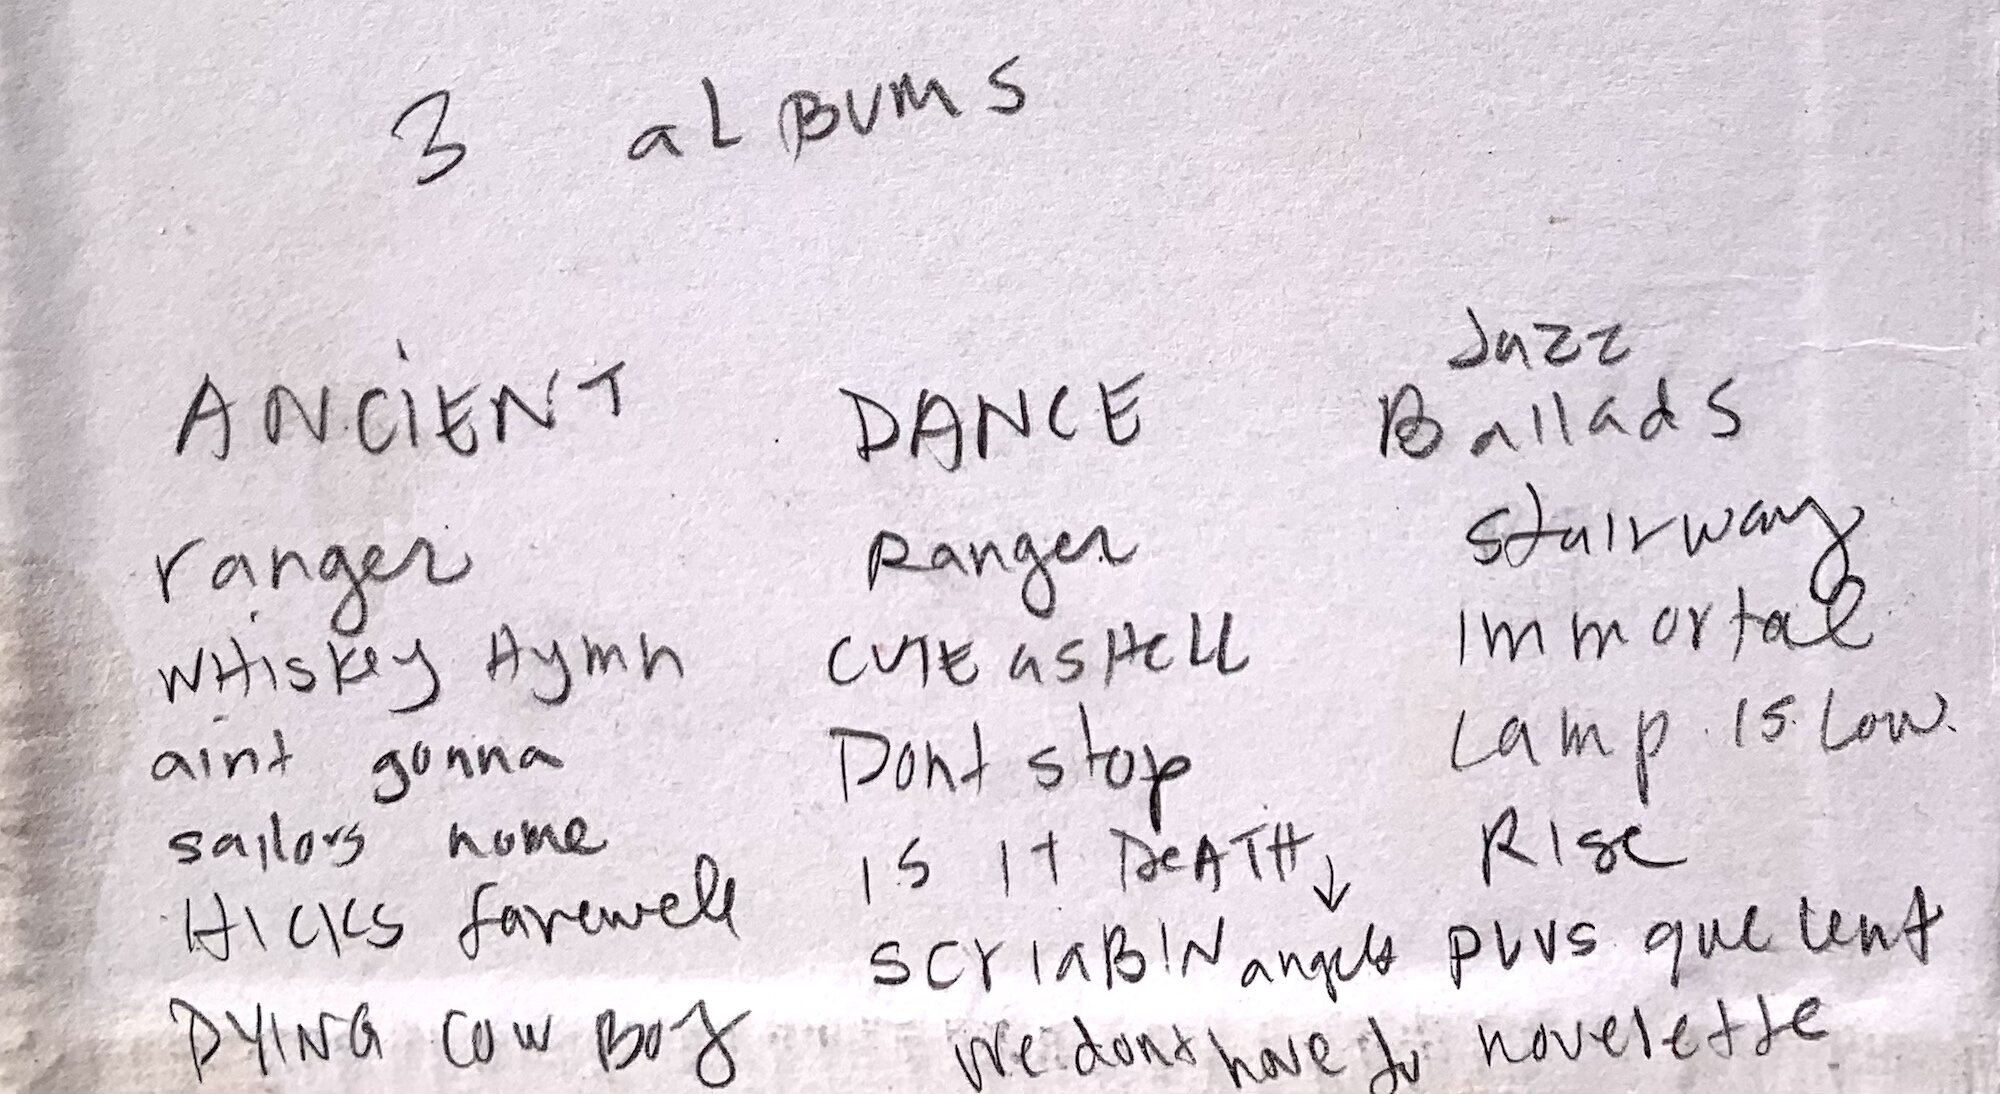 3 aLBUMS
ANCiENT
ranger
WHiskey Hymn
aint gonna
sailors home
HICKS farewell
DYING COWBOy
DANCE
Ranger
CUTE as HeLL
Dont stop
IS IT DeATH ↓
SCrIaBIN angels
We dont have to
Jazz
Ballads
Stairway
Immortal
Lamp is Low
RIse
PLUS que lent
novelette